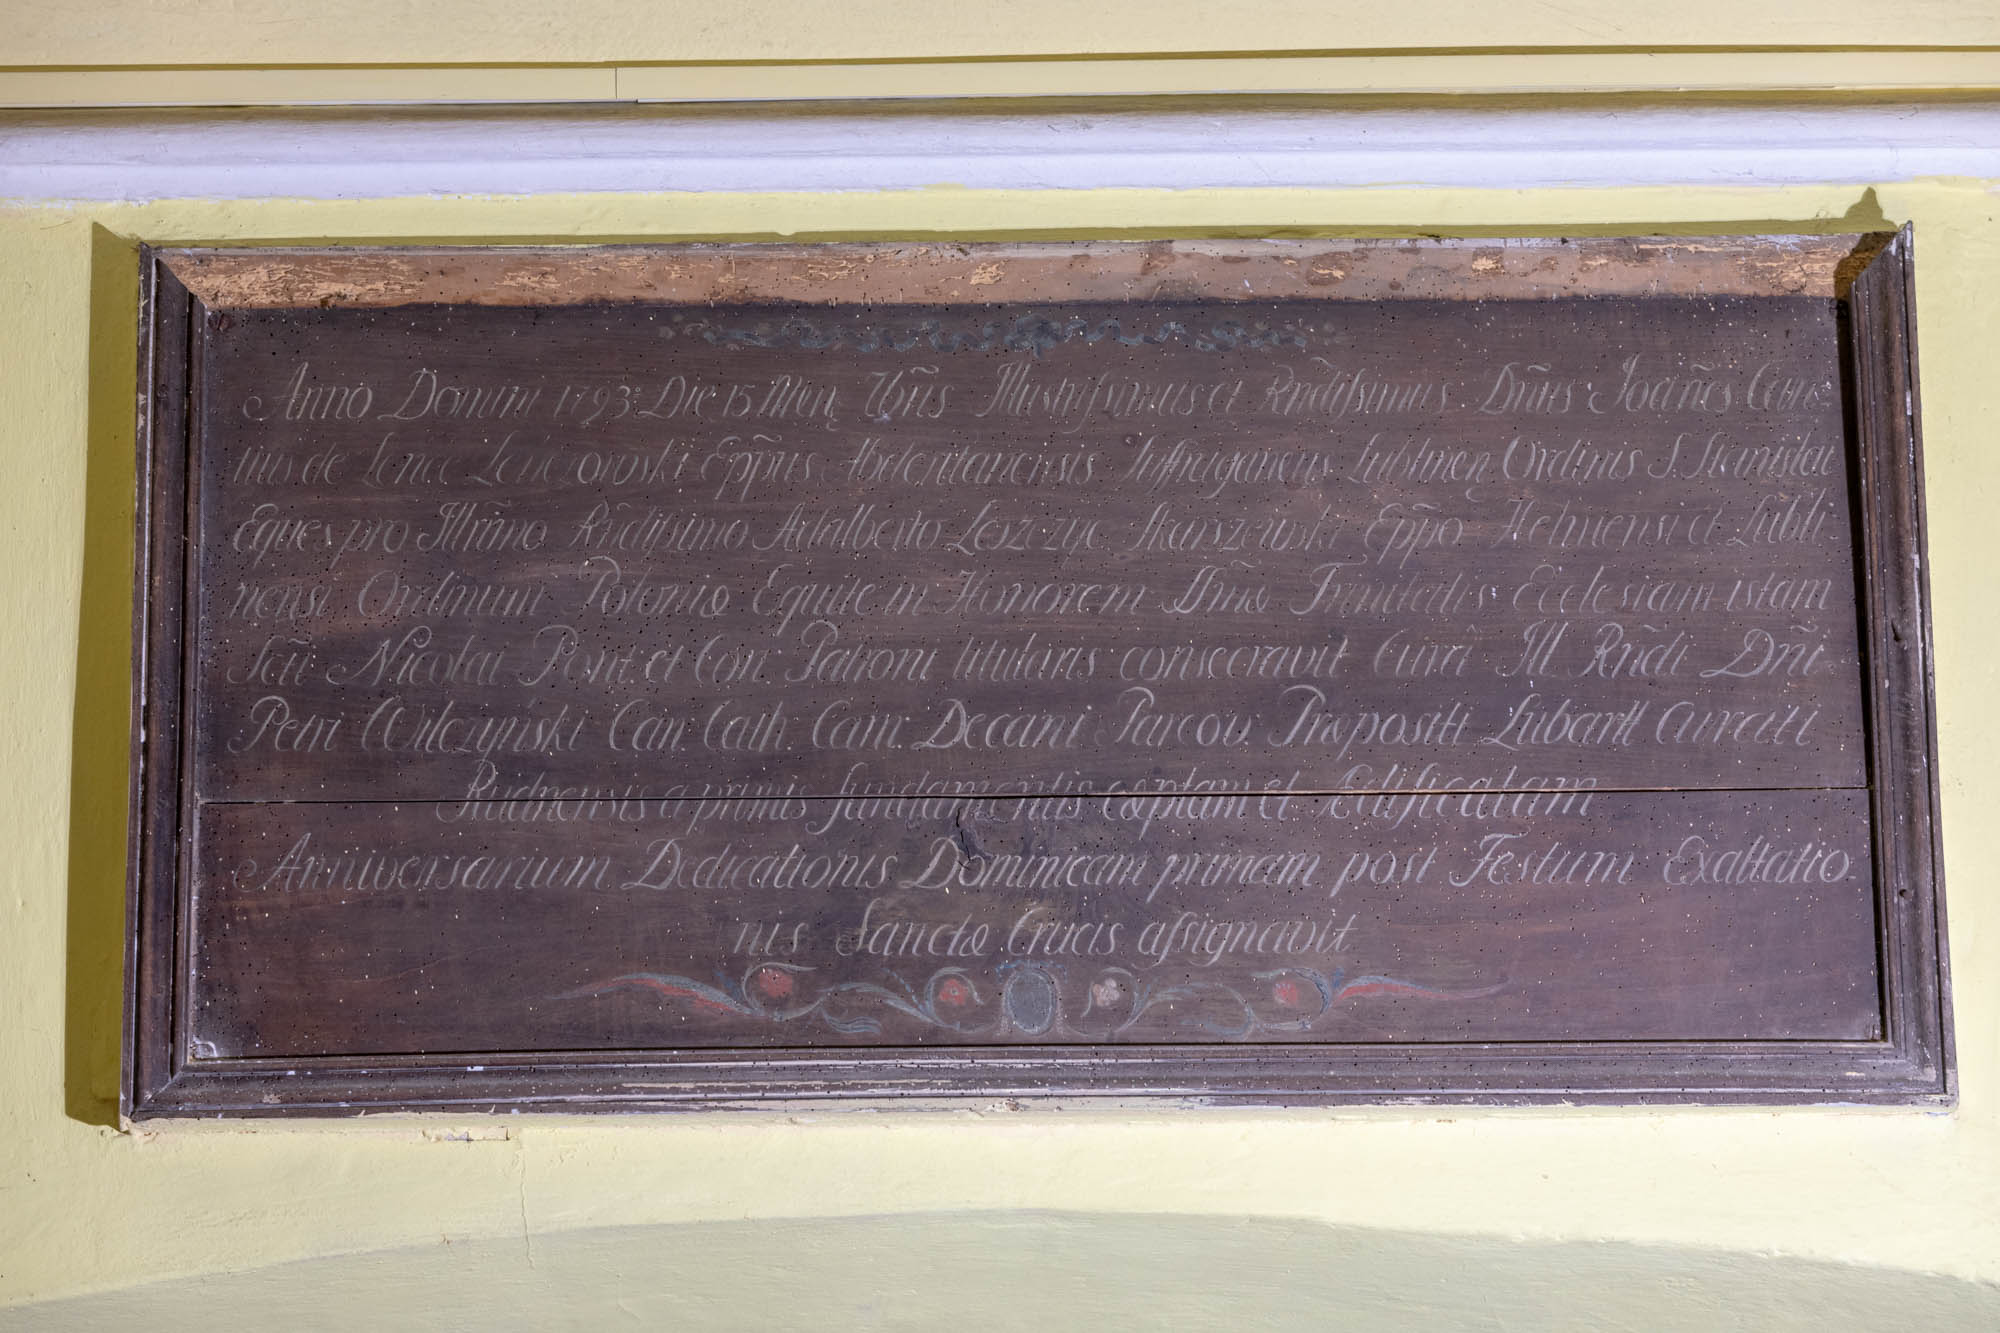 Anno Domini 1793: Die 15 Men. 7bris Illustrissimus et Rndissimus Dnus Joanes Can
tius de Lenc. Lenczowski Eppus Abderitanensis Suffraganeus Lublinen Ordinis S. Stanislai
Eques pro Illmo Rndisimo Adalberto Leszczyc Skarszewski Eppo Helmensi et Lubli-
nensi Ordinum Poloniæ Equite in Honorem Smæ Trinitatis Ecclesiam istam
Scti Nicolai Pont. et Con. Patroni titularis consecravit Curâ Ill Rndi Dni
Petri Wilczyński Can. Cath. Cam. Decani Parcov. Præpositi Lubartt Curatti
Rudnensis a primis fundamentis cæptam et Ædificatam
Anniversarium Dedicationis Dominicam primam post Festum Exaltatio-
nis Sanctæ Crucis assignavit